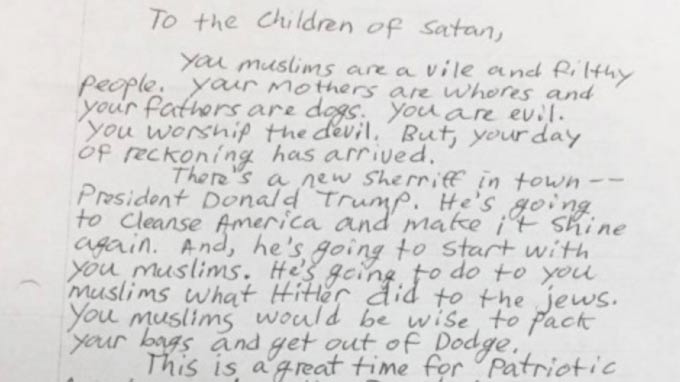 To the Children of Satan,
You muslims are a vile and filthy
people. Your mothers are whores and
your fathers are dogs. You are evil.
You worship the devil. But, your day
of reckoning has arrived.
There's a new sherriff in town --
President Donald Trump. He's going
to cleanse America and make it shine
again. And, he's going to start with
you muslims. He's going to do to you
muslims what Hitler did to the jews.
You muslims would be wise to pack
your bags and get out of Dodge.
This is a great time for Patriotic